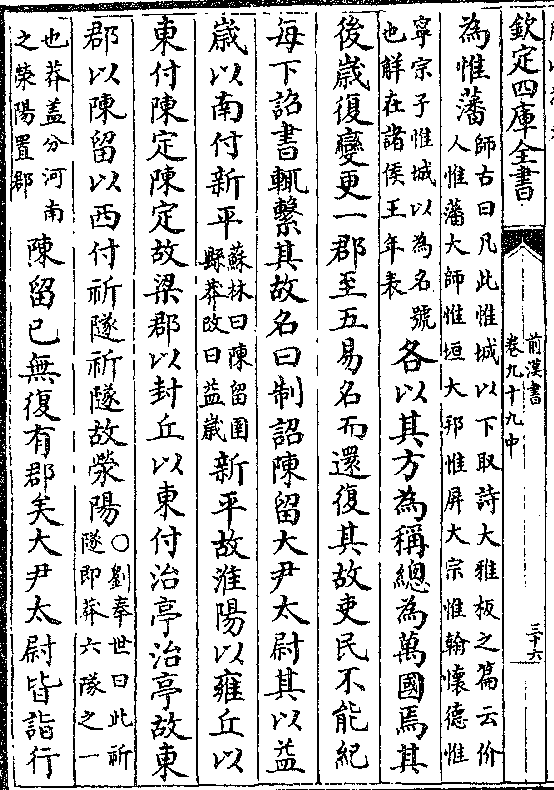 欽定四庫全書
前漢書
卷九十九中
三十六
為惟藩師古曰凡此惟城以下取詩大雅板之篇云价
人惟藩大師惟垣大邦惟屏大宗惟翰懷德惟
寧宗子惟城以為名號
也解在諸侯王年表各以其方為稱總為萬國焉其
後歲復變更一郡至五易名而還復其故吏民不能紀
每下詔書輒繫其故名曰制詔陳留大尹太尉其以益
歲以南付新平蘇林曰陳留圉
縣莽改曰益歲新平故淮陽以雍丘以
東付陳定陳定故梁郡以封丘以東付治亭治亭故東
郡以陳留以西付祈隧祈隧故滎陽○劉奉世曰此祈
隧即莽六隊之一
也莽盖分河南
之滎陽置郡陳留已無復有郡矣大尹太尉皆詣行